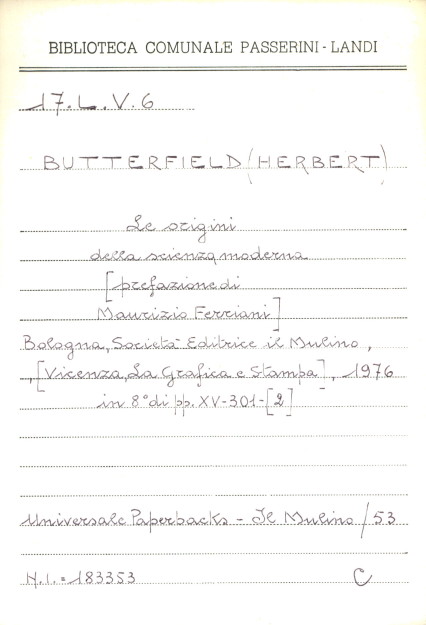 BIBLIOTECA COMUNALE PASSERINI-LANDI
17.L.V.6
BUTTERFIELD (HERBERT)
Le origini
della scienza moderna
[prefazione di
Maurizio Ferriani]
Bologna, Società Editrice il Mulino,
, [Vicenza, La Grafica e Stampa], 1976
in 8° di pp. XV-301-[2]
Universale Paperbacks - Il Mulino / 53
N.I. = 183353 C